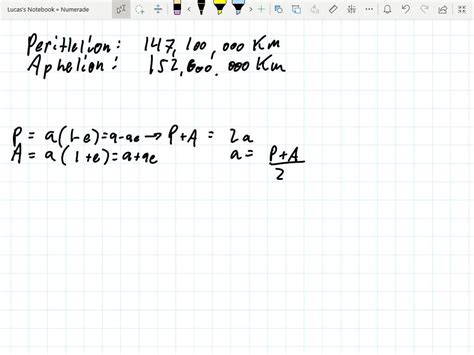 Lucas's Notebook » Numerade
Perihelion: 147,100,000 Km
Aphelion: 152,600,000 Km
P = a(1-e)=a-ae → P+A = 2a
A = a(1+e)=a+ae a= P+A
2